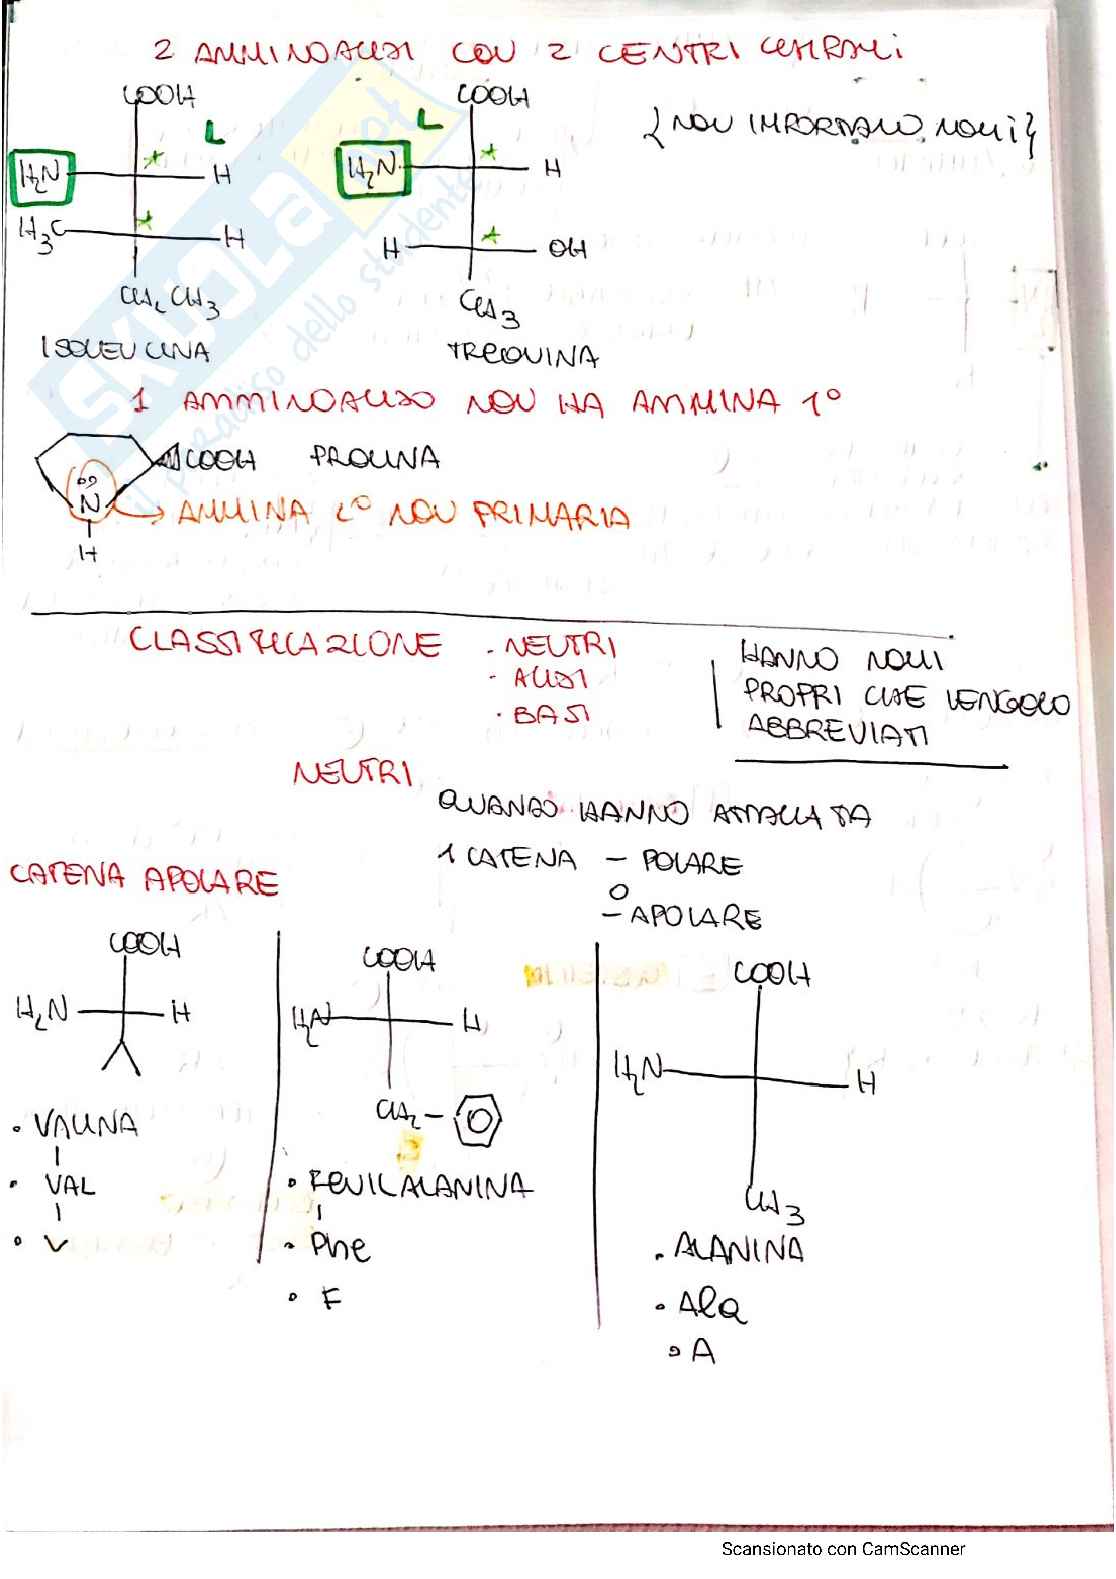 2 AMMINOACIDI CON 2 CENTRI CHIRALI
COOH
L
H2N
H
H3C
H
CH2 CH3
ISOLEUCINA
COOH
L
H2N
H
H
OH
CH3
TREONINA
{NON IMPORTANO NOMI}
1 AMMINOACIDO NON HA AMMINA 1°
COOH PROLINA
N
H
AMMINA 2° NON PRIMARIA
CLASSIFICAZIONE
· NEUTRI
· ACIDI
· BASI
HANNO NOMI
PROPRI CHE VENGONO
ABBREVIATI
NEUTRI
QUANDO HANNO ATTACCATA
1 CATENA - POLARE
O
- APOLARE
CATENA APOLARE
COOH
H2N
H
• VALINA
• VAL
• V
COOH
H2N
H
CH2 -
• FENILALANINA
• Phe
• F
COOH
H2N
H
CH3
• ALANINA
• Ala
• A
SKUOLA.net
il paradiso dello studente
Scansionato con CamScanner